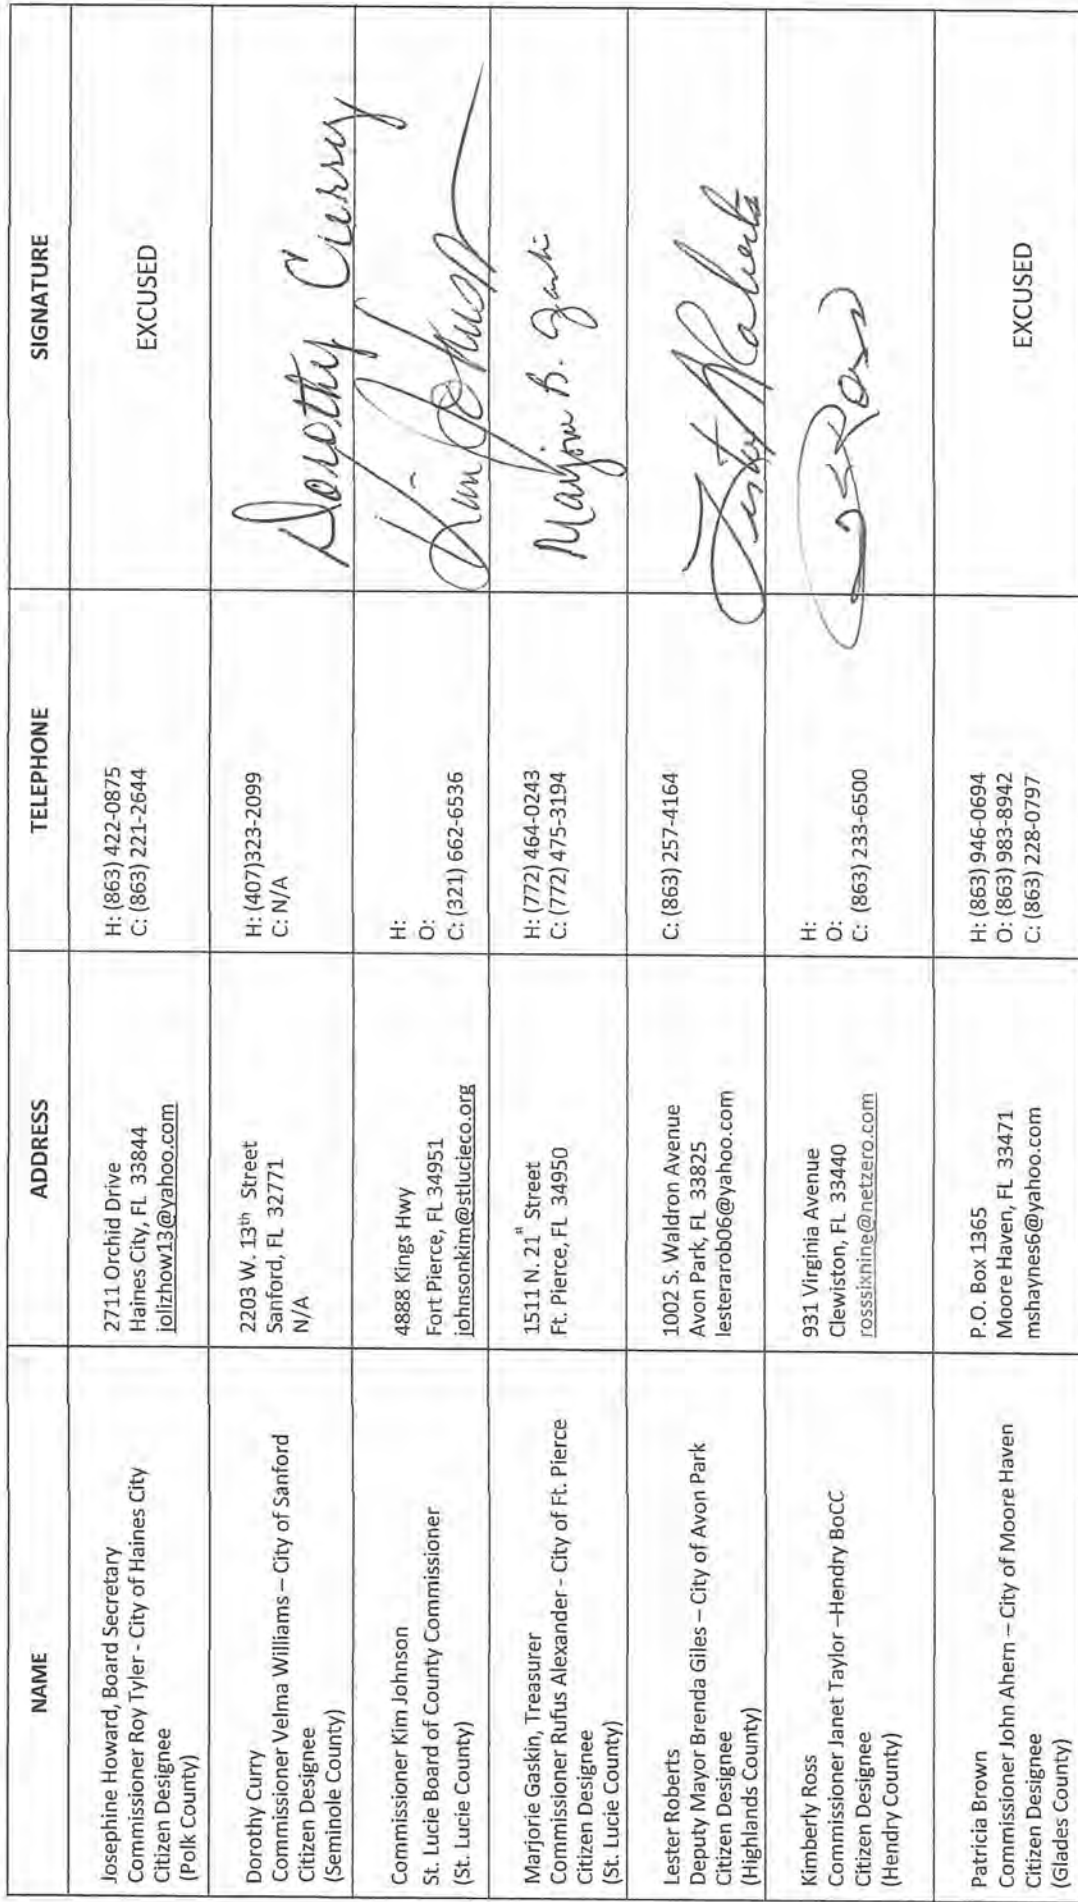 NAME
ADDRESS
TELEPHONE
SIGNATURE
Josephine Howard, Board Secretary
Commissioner Roy Tyler - City of Haines City
Citizen Designee
(Polk County)
2711 Orchid Drive
Haines City, FL 33844
jolizhow13@yahoo.com
H: (863) 422-0875
C: (863) 221-2644
EXCUSED
Dorothy Curry
Commissioner Velma Williams – City of Sanford
Citizen Designee
(Seminole County)
2203 W. 13th Street
Sanford, FL 32771
N/A
H: (407)323-2099
C: N/A
Dorothy Curry
Commissioner Kim Johnson
St. Lucie Board of County Commissioner
(St. Lucie County)
4888 Kings Hwy
Fort Pierce, FL 34951
johnsonkim@stlucieco.org
H:
O:
C: (321) 662-6536
Kim Johnson
Marjorie Gaskin, Treasurer
Commissioner Rufus Alexander - City of Ft. Pierce
Citizen Designee
(St. Lucie County)
1511 N. 21st Street
Ft. Pierce, FL 34950
H: (772) 464-0243
C: (772) 475-3194
Marjorie B. Gaskin
Lester Roberts
Deputy Mayor Brenda Giles – City of Avon Park
Citizen Designee
(Highlands County)
1002 S. Waldron Avenue
Avon Park, FL 33825
lesterarob06@yahoo.com
C: (863) 257-4164
Lester Roberts
Kimberly Ross
Commissioner Janet Taylor –Hendry BoCC
Citizen Designee
(Hendry County)
931 Virginia Avenue
Clewiston, FL 33440
rosssixnine@netzero.com
H:
O:
C: (863) 233-6500
Ross
Patricia Brown
Commissioner John Ahern – City of Moore Haven
Citizen Designee
(Glades County)
P.O. Box 1365
Moore Haven, FL 33471
mshaynes6@yahoo.com
H: (863) 946-0694
O: (863) 983-8942
C: (863) 228-0797
EXCUSED